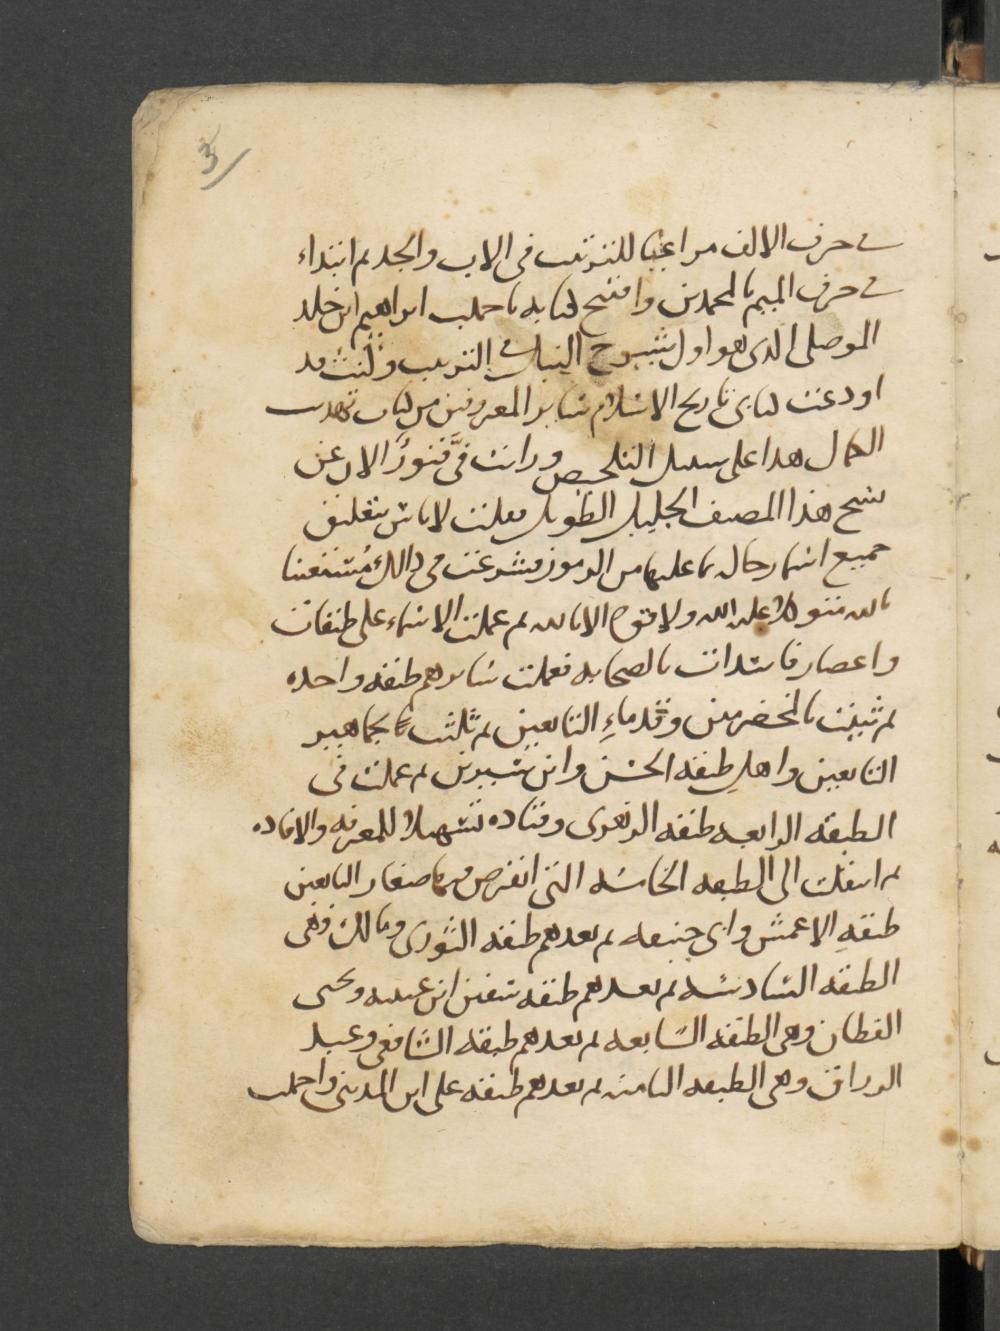 3
في حرف الالف مراعيا للترتيب في الاب والجد ثم ابتداء
في حرف الميم بالمحمدين وافتتح كتابه باحمد بن ابراهيم ابن خلد
الموصلي الذي هو اول شيوخ النبل في الترتيب وكنت قد
اودعت كتابي تاريخ الاسلام سائر المعروفين من كتاب تهذيب
الكمال هذا على سبيل التلخيص ورايت في فتورًا الان عن
نسخ هذا المصنف الجليل الطويل فعلت لا باس بتعليق
جميع اسما رجاله بما عليها من الرموز فشرعت في ذالك مستعينا
بالله متوكلا على الله ولا قوة الا بالله ثم عملت الاسماء على طبقات
واعصار فابتدات بالصحابه فعملت سائرهم طبقه واحده
ثم ثنيت بالمخضرمين وقدماءِ التابعين ثم ثلثت بجماهير
التابعين واهل طبقه الحسن وابن سيرين ثم عملت في
الطبقه الرابعه طبقه الزهري وقتاده تسهيلا للمعرفه والافاده
ثم انتقلت الى الطبقه الخامسه التي انقرض فيها صغار التابعين
طبقهِ الاعمش وابي حنيفه ثم بعدهم طبقه الثوري ومالك وهي
الطبقه السادسه ثم بعدهم طبقه سفين ابن عيينه ويحيى
القطان وهي الطبقه السابعه ثم بعدهم طبقه الشافعي وعبد
الرزاق وهي الطبقه الثامنه ثم بعدهم طبقه علي ابن المديني واحمد